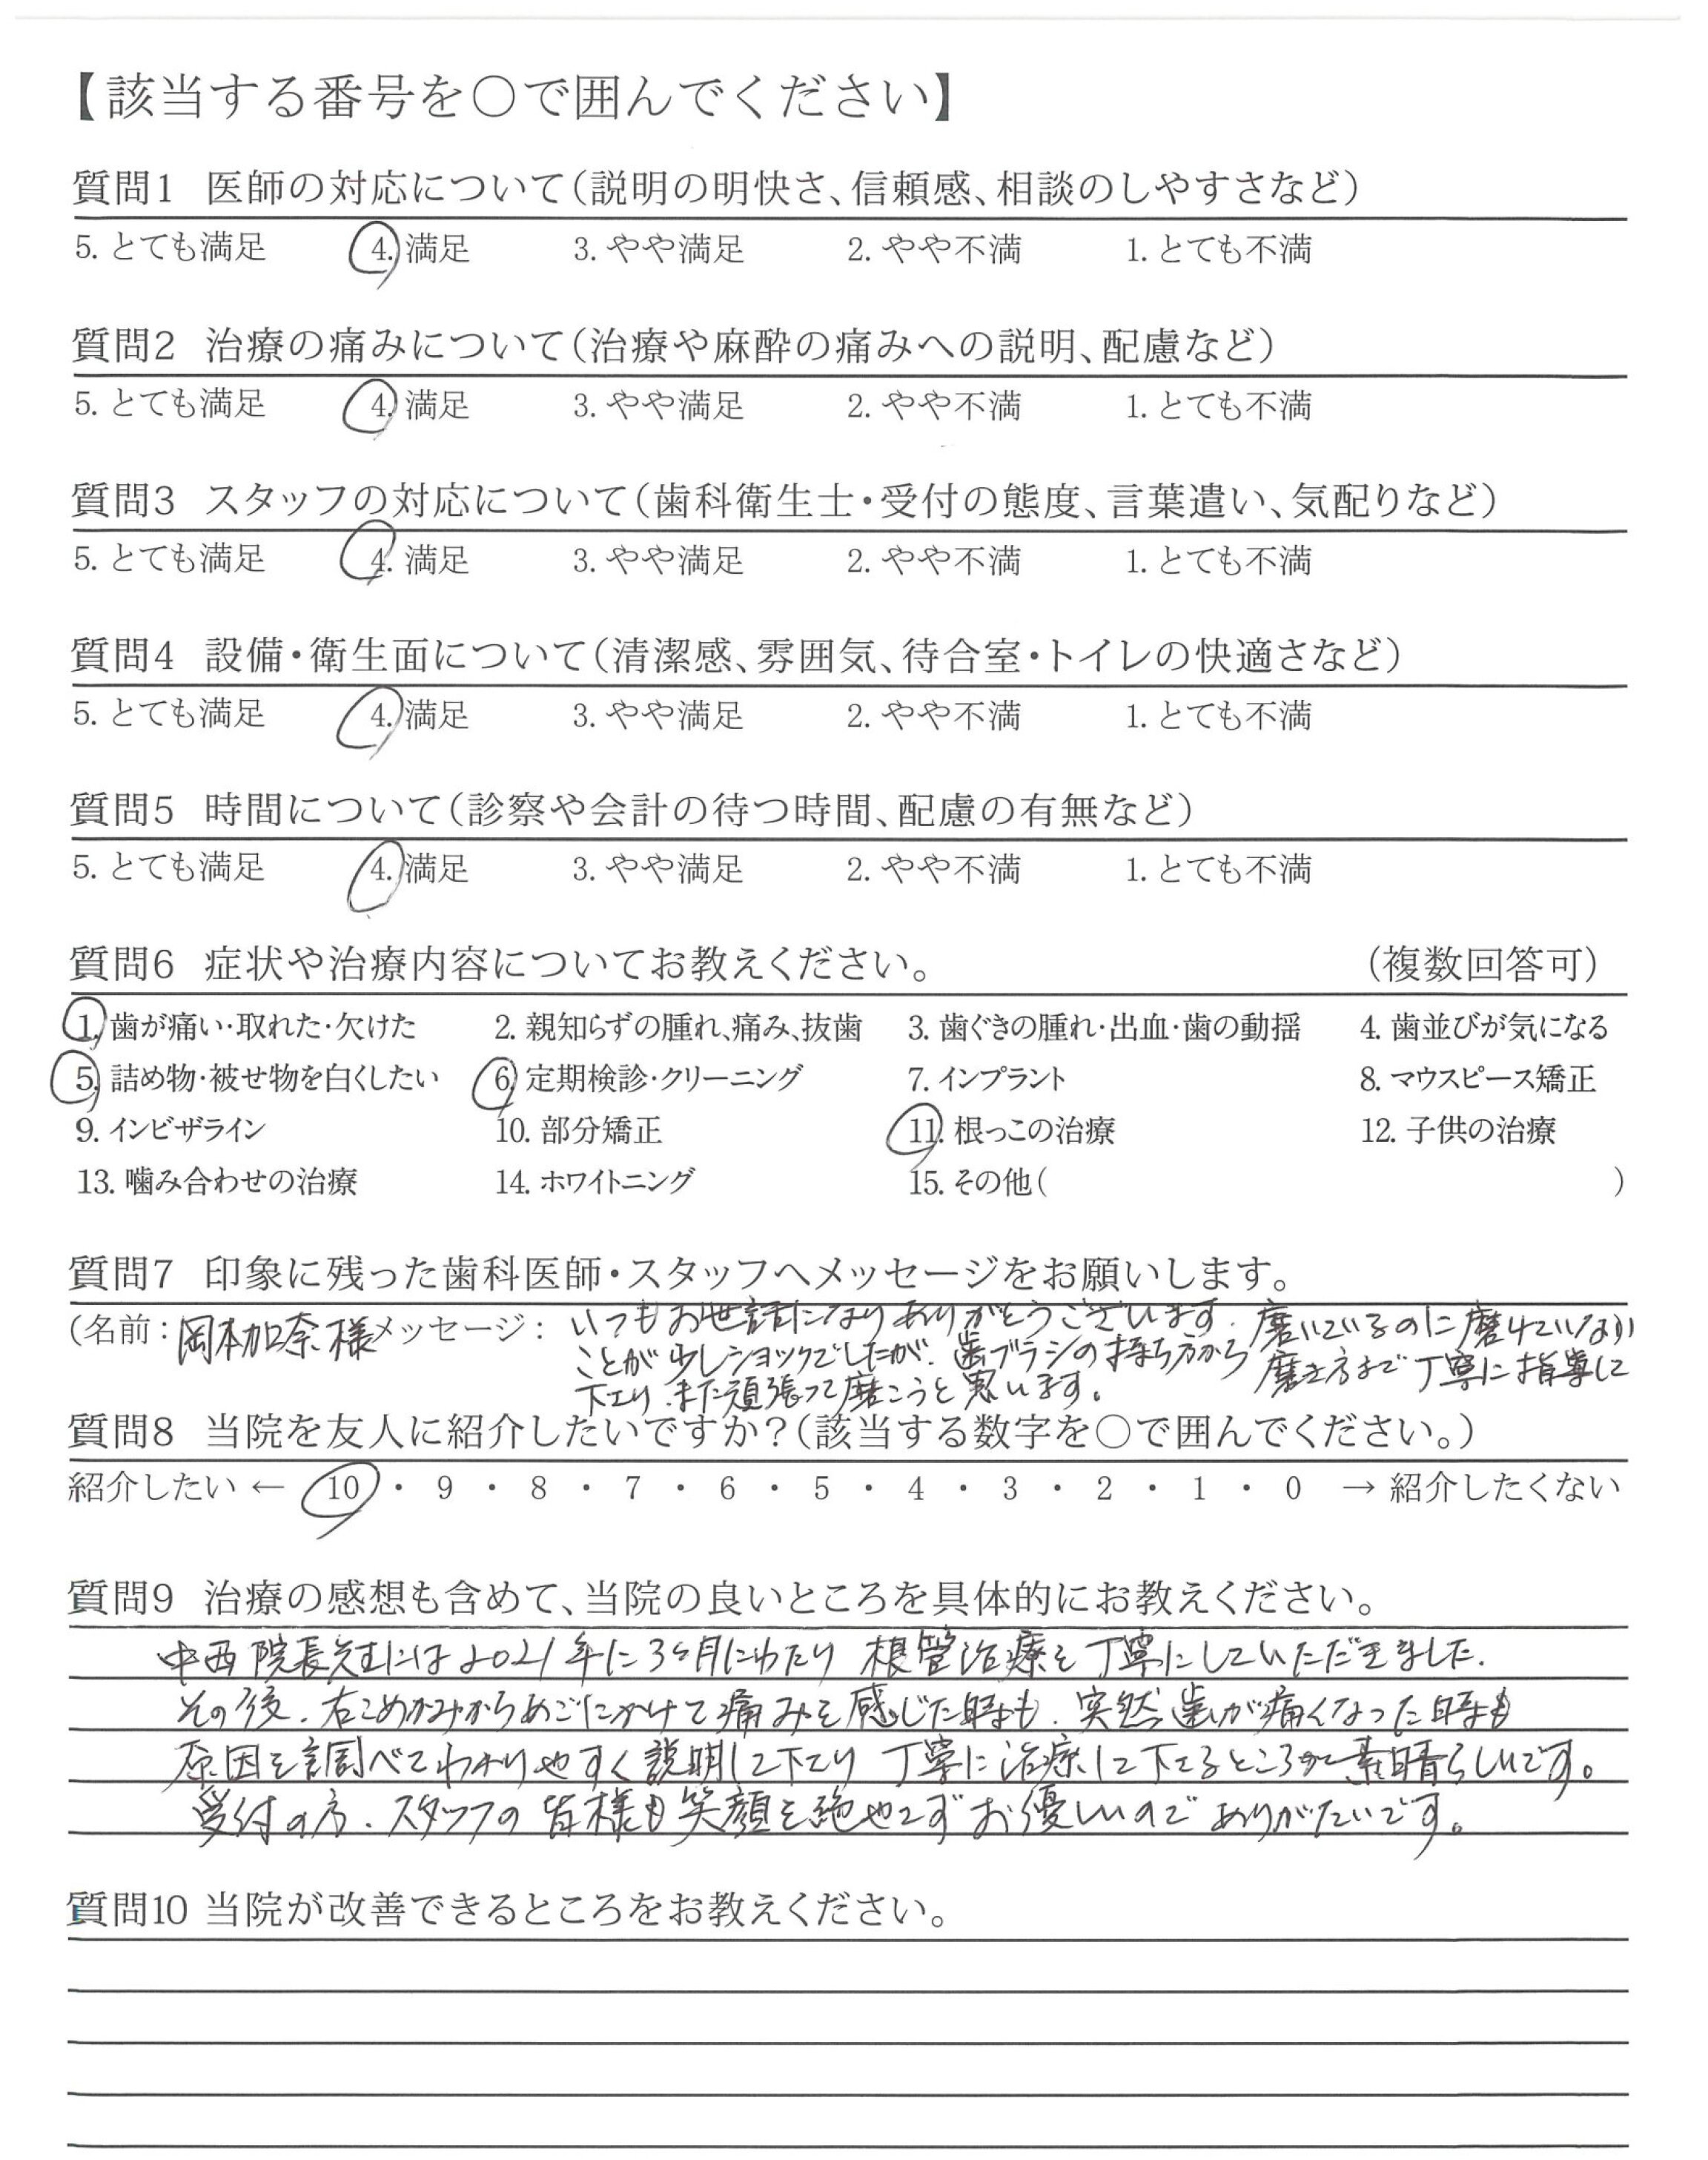 【該当する番号を○で囲んでください】
質問1 医師の対応について(説明の明快さ、信頼感、相談のしやすさなど)
5. とても満足 4. 満足 3. やや満足 2. やや不満 1. とても不満
質問2 治療の痛みについて(治療や麻酔の痛みへの説明、配慮など)
5. とても満足 4. 満足 3. やや満足 2. やや不満 1. とても不満
質問3 スタッフの対応について(歯科衛生士・受付の態度、言葉遣い、気配りなど)
5. とても満足 4. 満足 3. やや満足 2. やや不満 1. とても不満
質問4 設備・衛生面について(清潔感、雰囲気、待合室・トイレの快適さなど)
5. とても満足 4. 満足 3. やや満足 2. やや不満 1. とても不満
質問5 時間について(診察や会計の待つ時間、配慮の有無など)
5. とても満足 4. 満足 3. やや満足 2. やや不満 1. とても不満
質問6 症状や治療内容についてお教えください。 (複数回答可)
1. 歯が痛い・取れた・欠けた 2. 親知らずの腫れ、痛み、抜歯 3. 歯ぐきの腫れ・出血・歯の動揺 4. 歯並びが気になる
5. 詰め物・被せ物を白くしたい 6. 定期検診・クリーニング 7. インプラント 8. マウスピース矯正
9. インビザライン 10. 部分矯正 11. 根っこの治療 12. 子供の治療
13. 噛み合わせの治療 14. ホワイトニング 15. その他( )
質問7 印象に残った歯科医師・スタッフへメッセージをお願いします。
(名前：岡本加奈様 メッセージ： いつもお世話になりありがとうございます. 磨いているのに磨けていない
ことが少しショックでしたが、歯ブラシの持ち方から磨き方まで丁寧に指導して
下さり、また頑張って磨こうと思います。
質問8 当院を友人に紹介したいですか？(該当する数字を○で囲んでください。)
紹介したい ← 10 ・ 9 ・ 8 ・ 7 ・ 6 ・ 5 ・ 4 ・ 3 ・ 2 ・ 1 ・ 0 → 紹介したくない
質問9 治療の感想も含めて、当院の良いところを具体的にお教えください。
中西院長先生には2021年に3ヶ月にわたり 根管治療を丁寧にしていただきました.
その後、右こめかみからあごにかけて痛みを感じた時も、突然歯が痛くなった時も
原因を調べてわかりやすく説明して下さり 丁寧に治療して下さるところが素晴らしいです。
受付の方、スタッフの皆様も笑顔を絶やさずお優しいのでありがたいです。
質問10 当院が改善できるところをお教えください。